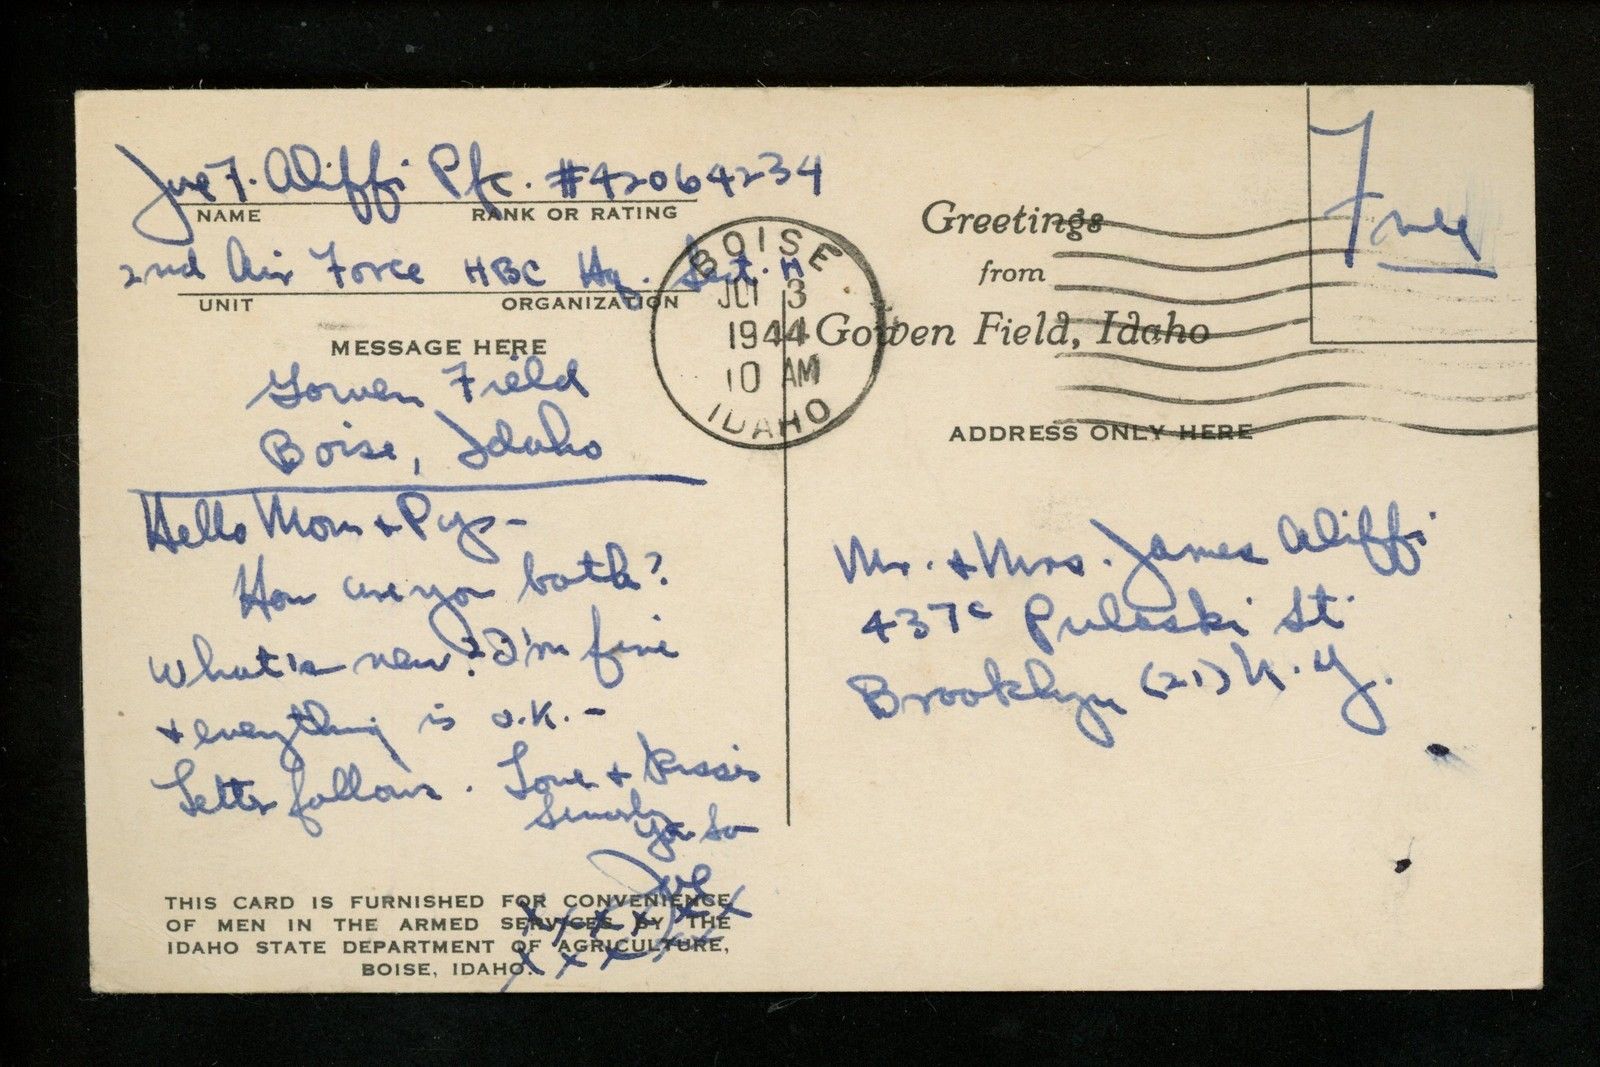 Joe F. Aliffi Pfc. #42064234
NAME RANK OR RATING
2nd Air Force HBC Hq. Sect. H
UNIT ORGANIZATION
MESSAGE HERE
Gowen Field
Boise, Idaho
Hello Mom & Pop -
How are you both?
What's new? I'm fine
& everything is o.K. -
Letter follows. Love & Kisses
Joe
x x x x x
x x x x x
THIS CARD IS FURNISHED FOR CONVENIENCE
OF MEN IN THE ARMED SERVICES BY THE
IDAHO STATE DEPARTMENT OF AGRICULTURE,
BOISE, IDAHO.
BOISE
3
1944
10 AM
IDAHO
Greetings
from
Gowen Field, Idaho
Free
ADDRESS ONLY HERE
Mr. & Mrs. James Aliffi
437c Pulaski St.
Brooklyn (21) N.Y.